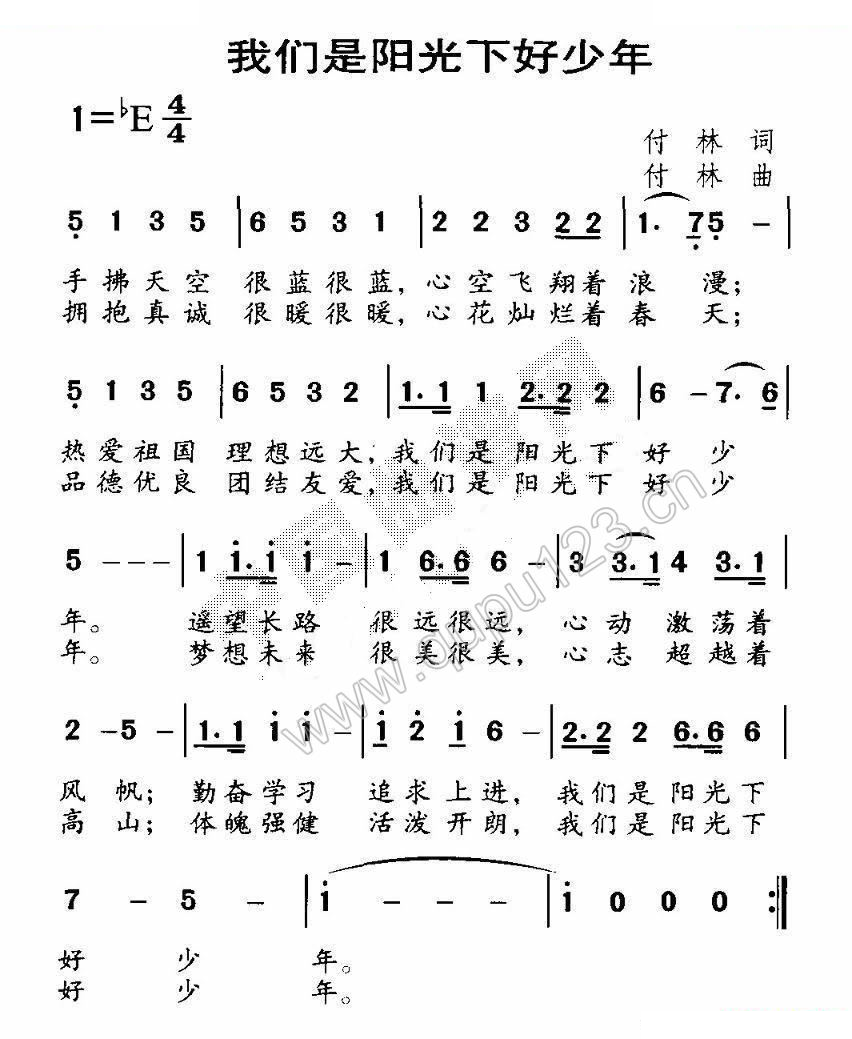 我们是阳光下好少年
1=♭E 4/4
付 林 词
付 林 曲
5̣ 1 3 5 | 6 5 3 1 | 2 2 3 2 2 | 1. 7̣ 5̣ - |
手拂天空 很蓝很蓝,心空飞翔着浪 漫;
拥抱真诚 很暖很暖,心花灿烂着春 天;
5̣ 1 3 5 | 6 5 3 2 | 1. 1 1 2. 2 2 | 6 - 7. 6 |
热爱祖国 理想远大,我们是 阳光下 好 少
品德优良 团结友爱,我们是 阳光下 好 少
5 - - - | 1 i. i i - | 1 6. 6 6 - | 3 3. 1 4 3. 1 |
年。 遥望长路 很远很远, 心动 激荡着
年。 梦想未来 很美很美, 心志 超越着
2 - 5 - | 1. 1 i i - | i 2̇ i 6 - | 2. 2 2 6. 6 6 |
风 帆; 勤奋学习 追求上进, 我们是 阳光下
高 山; 体魄强健 活泼开朗, 我们是 阳光下
7 - 5 - | i - - - | i 0 0 0 :‖
好 少 年。
好 少 年。
www.qupu123.cn